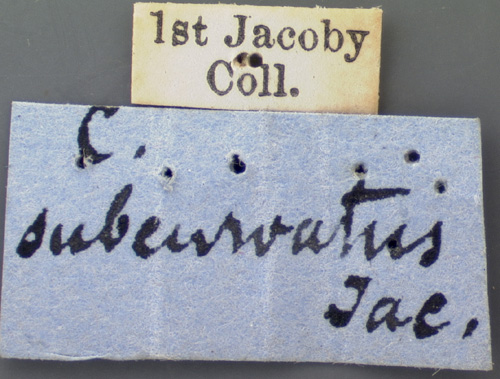 1st Jacoby
Coll.
C.
subcurvatus
Jac.